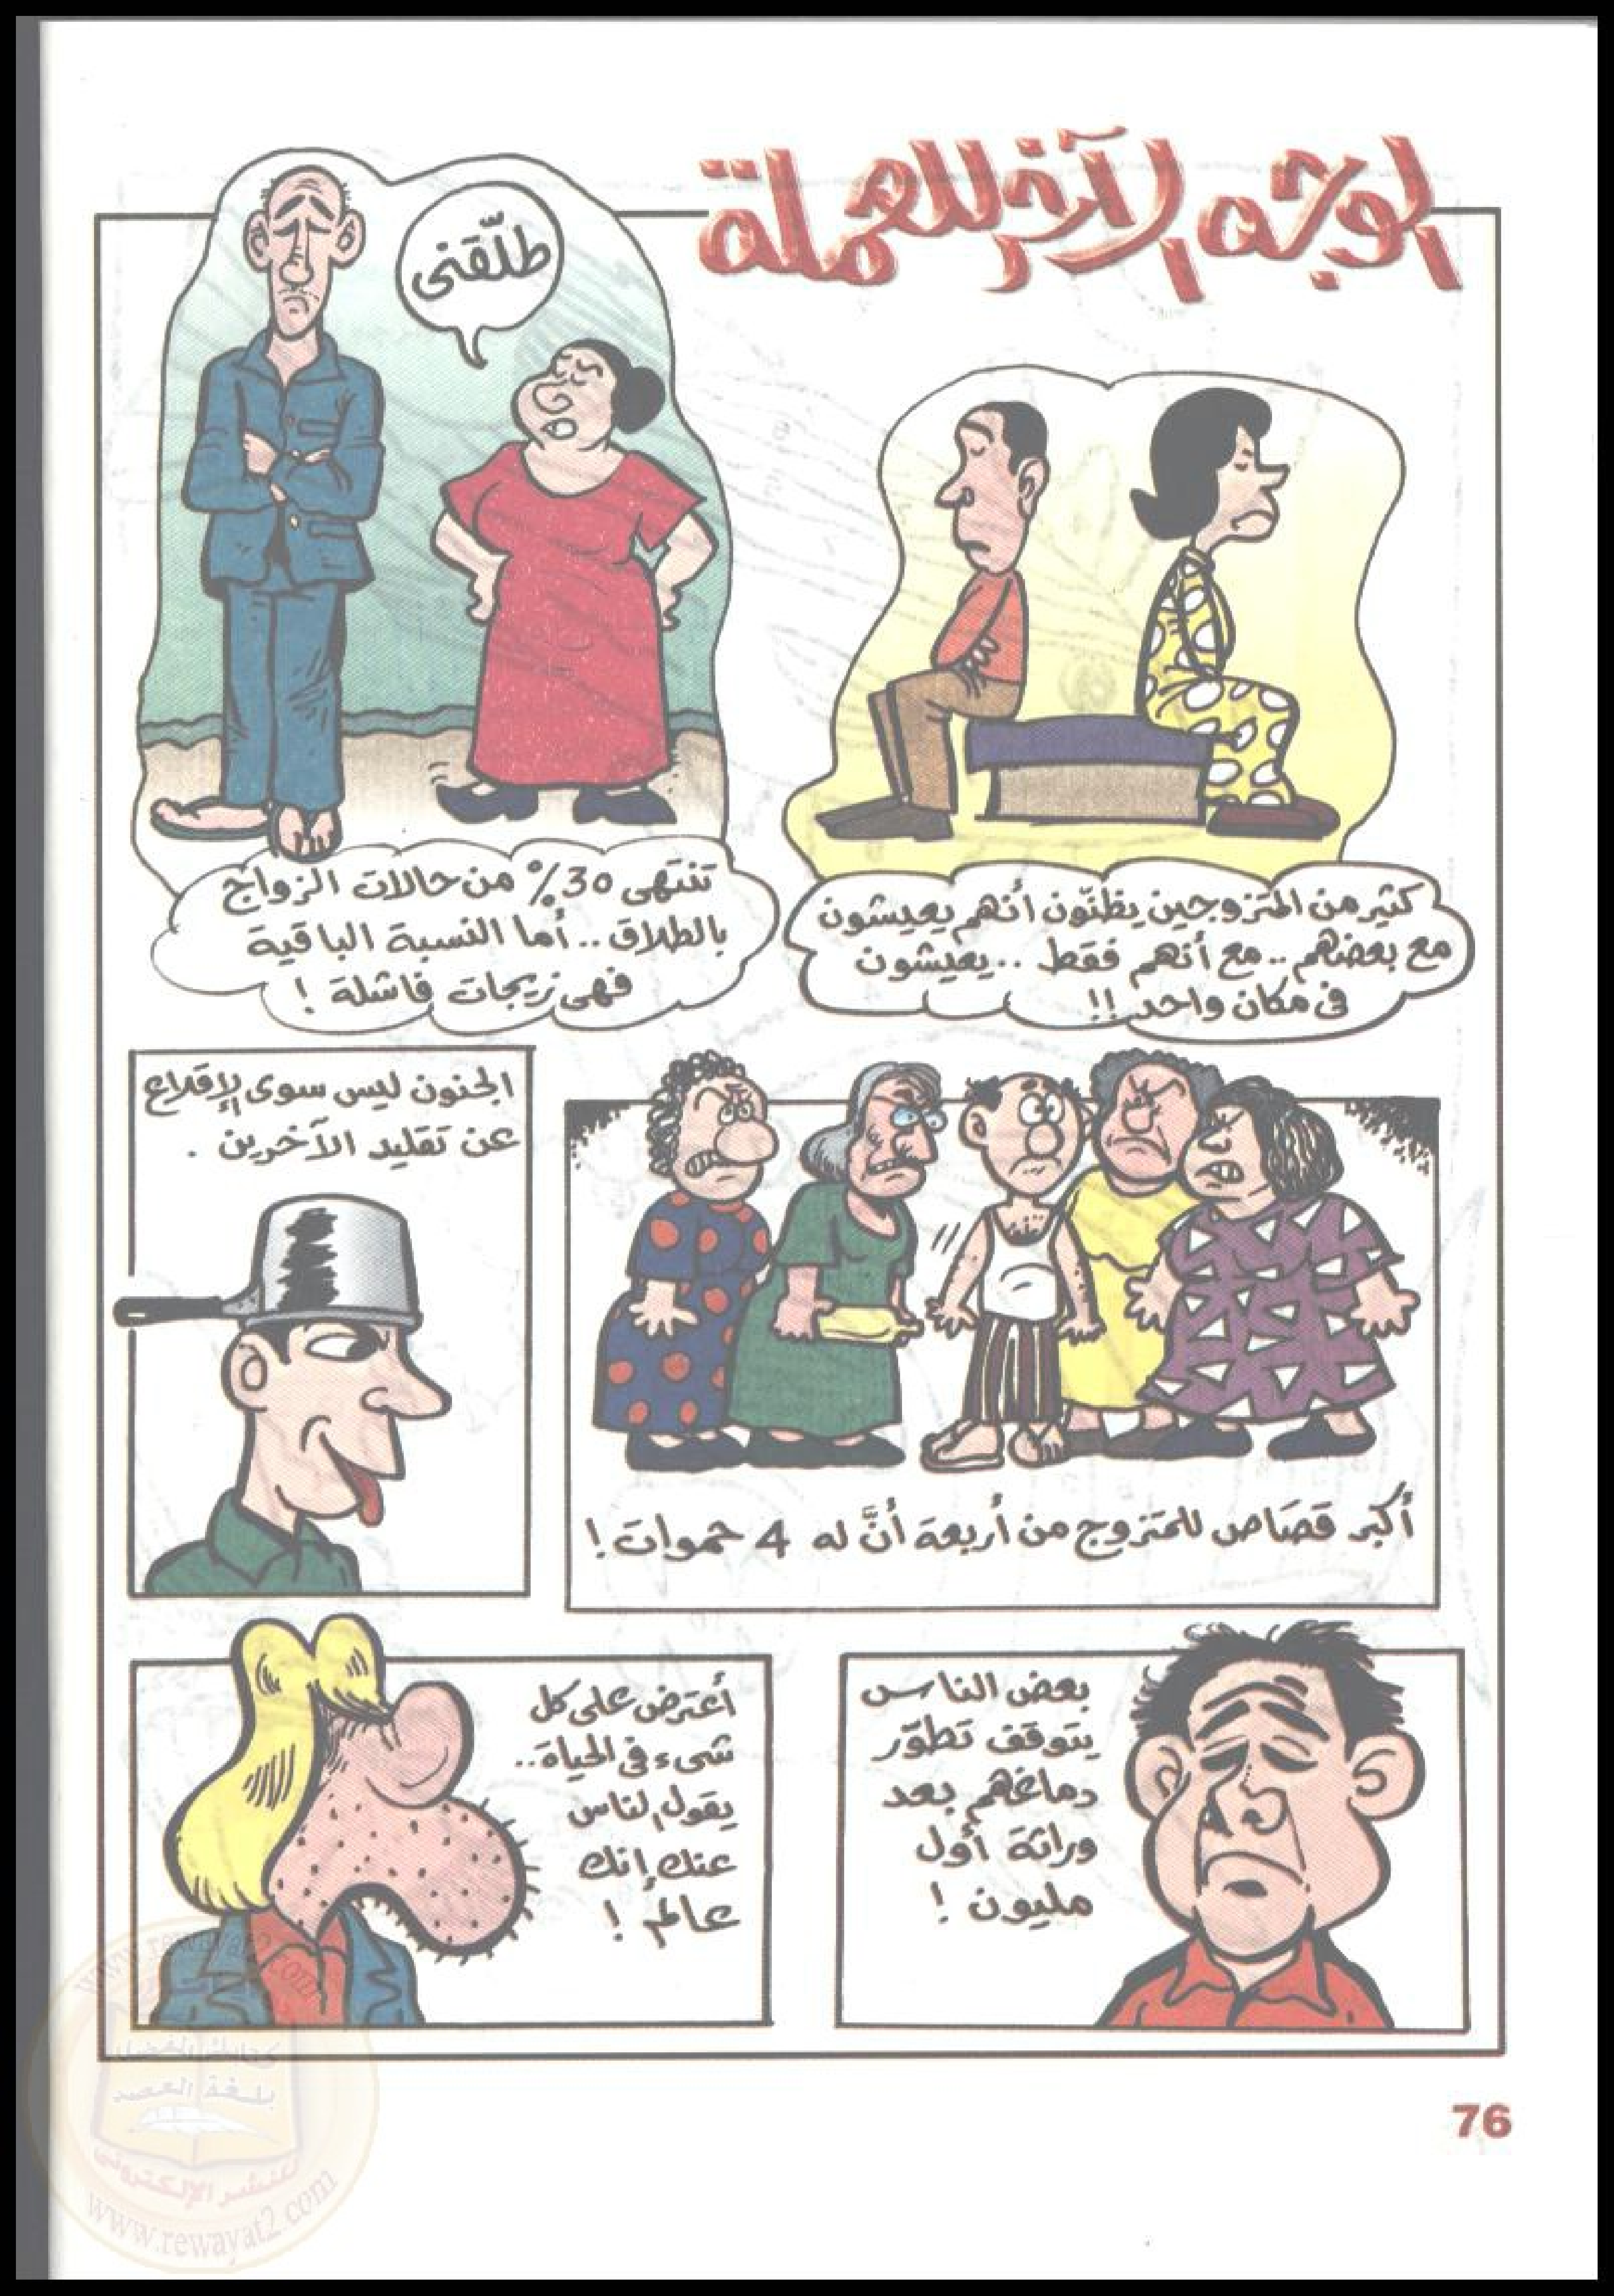 الوجه الآخر للعملة
كثير من المتزوجين يظنّون أنهم يعيشون
مع بعضهم .. مع أنهم فقط .. يعيشون
فى مكان واحد !!
طلّقنى
تنتهى 30% من حالات الزواج
بالطلاق .. أما النسبة الباقية
فهى زيجات فاشلة !
أكبر قصَاص للمتزوج من أربعة أنَّ له 4 حموات !
الجنون ليس سوى الإقلاع
عن تقليد الآخرين .
بعض الناس
يتوقف تطوّر
دماغهم بعد
وراثة أول
مليون !
أعترض على كل
شىء فى الحياة ..
يقول الناس
عنك إنك
عالم !
76
www.rewayat2.com
بلغة العصر
للنشر الإلكترونى
www.rewayat2.com